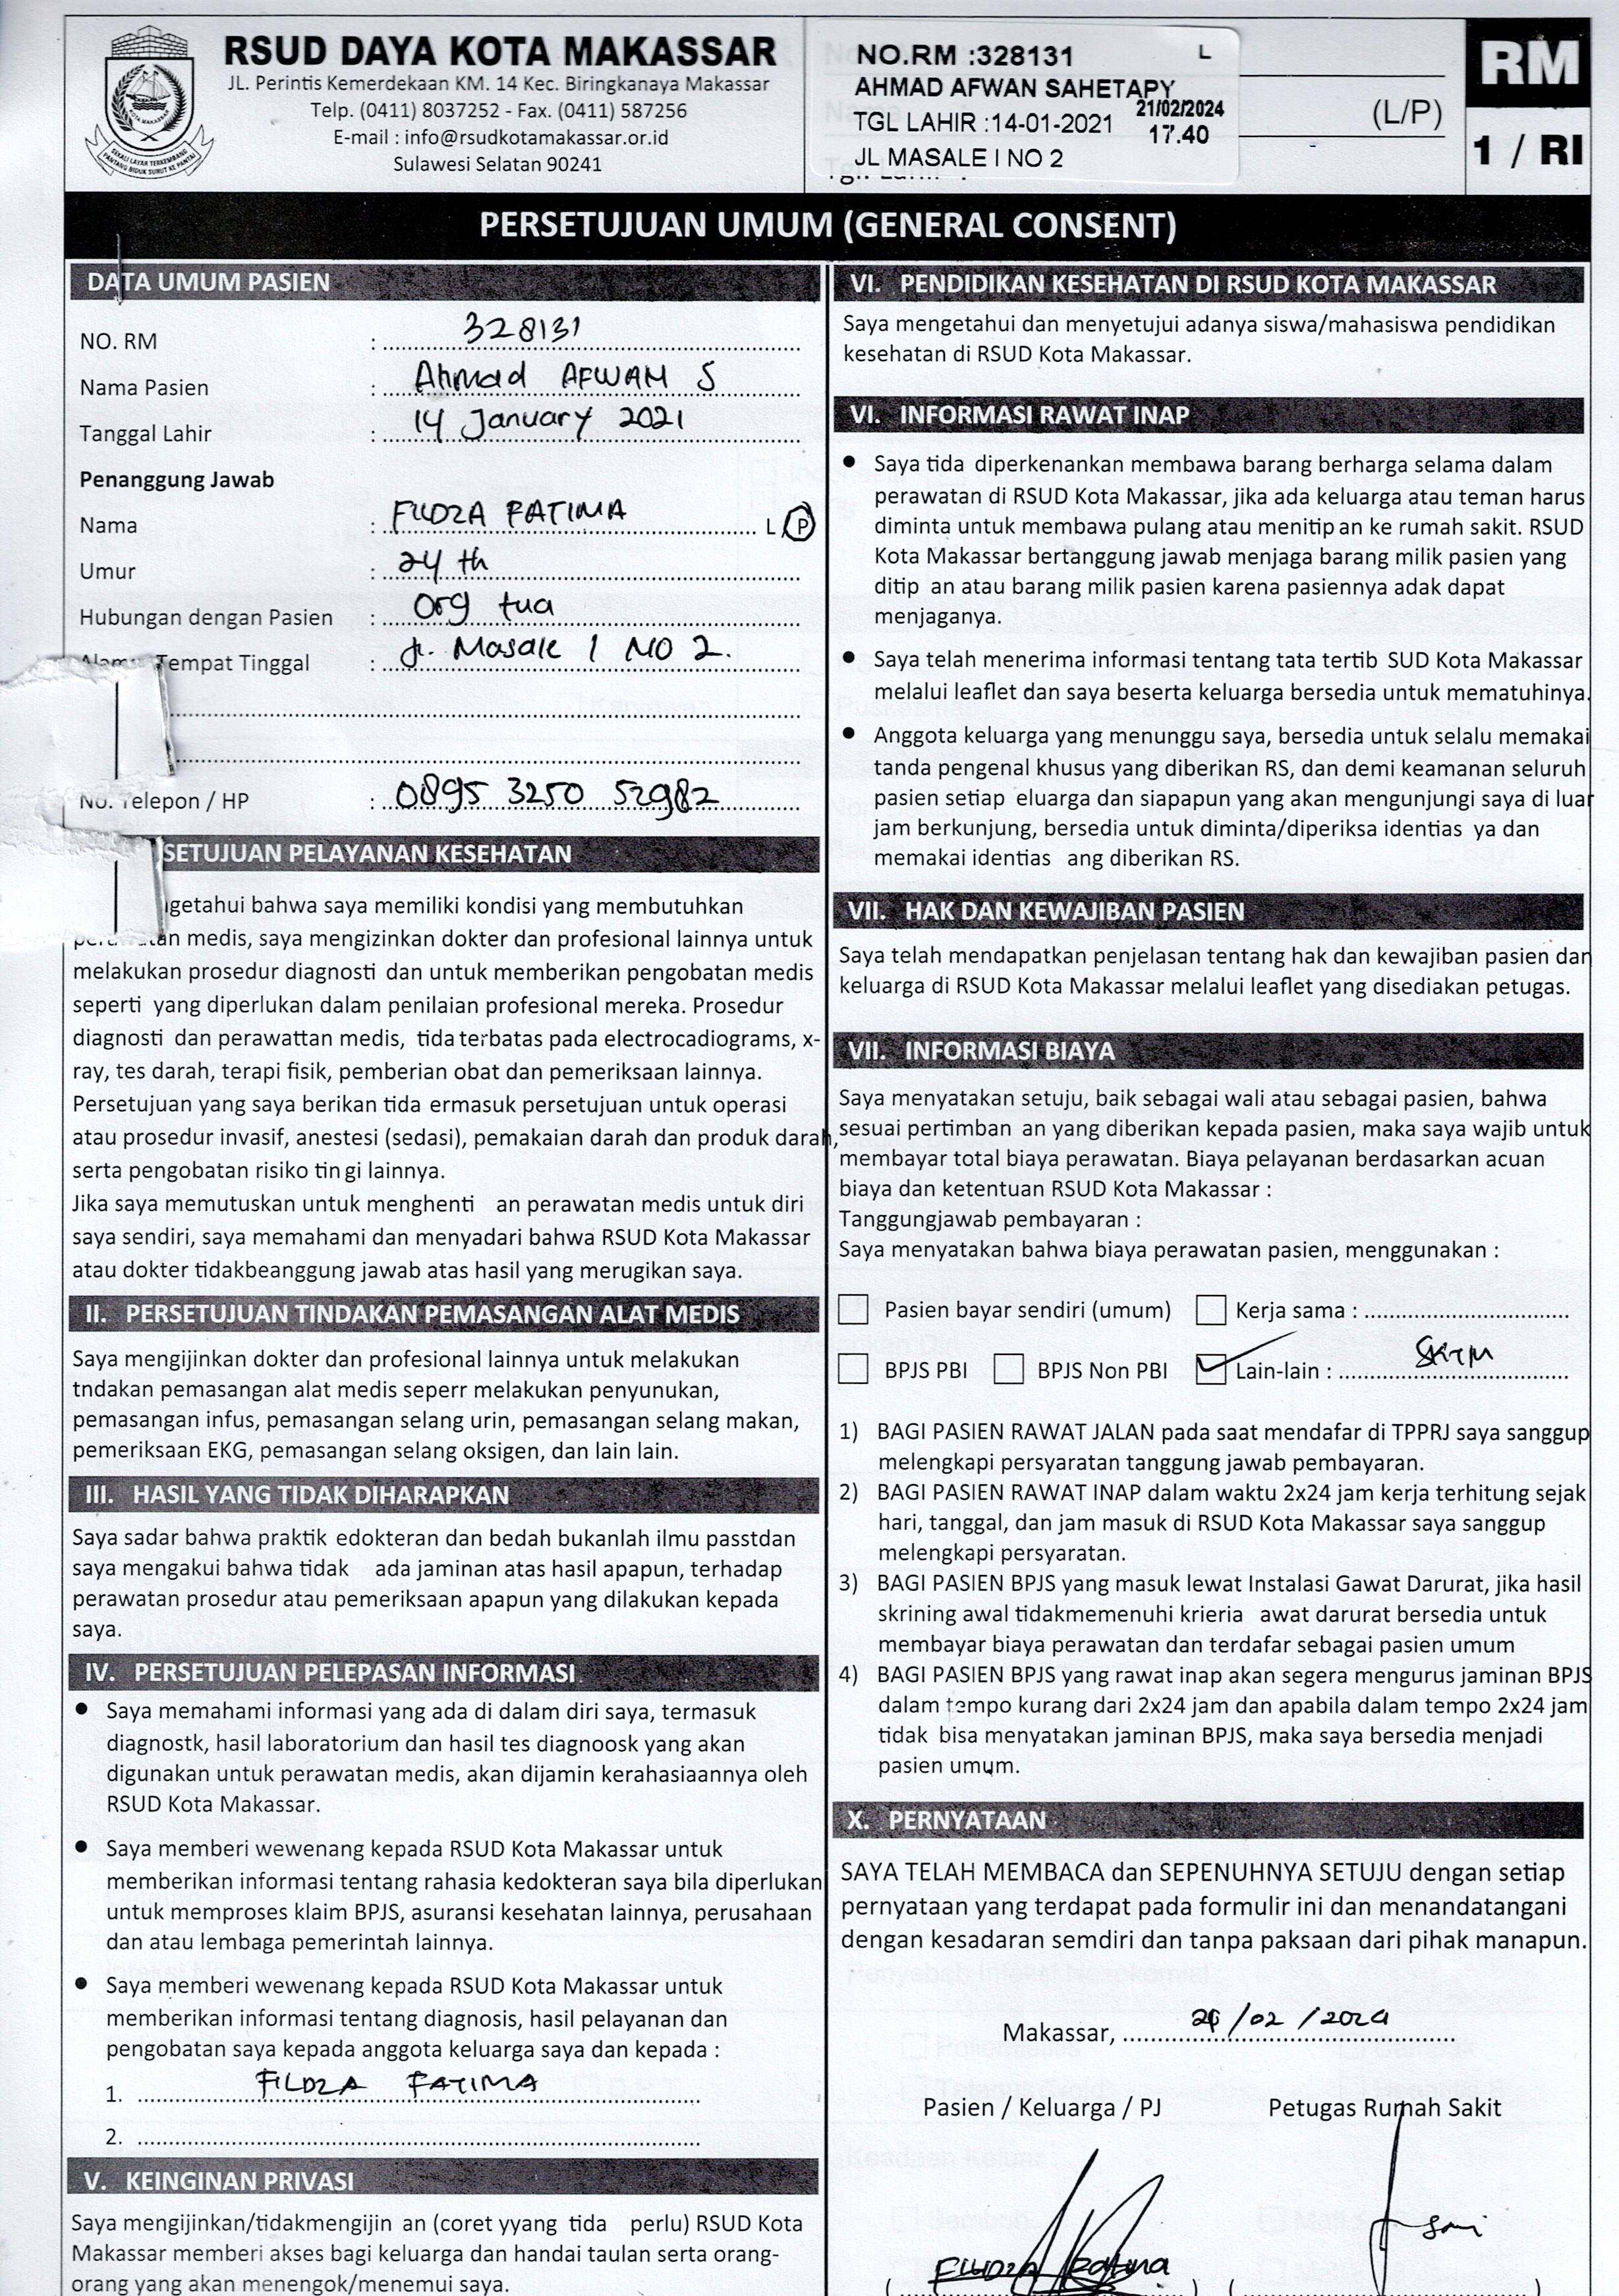 RSUD DAYA KOTA MAKASSAR
JL. Perintis Kemerdekaan KM. 14 Kec. Biringkanaya Makassar
Telp. (0411) 8037252 - Fax. (0411) 587256
E-mail : info@rsudkotamakassar.or.id
Sulawesi Selatan 90241
SEKALI LAYAR TERKEMBANG
PANTANG BIDUK SURUT KE PANTAI
NO.RM :328131 L
AHMAD AFWAN SAHETAPY
21/02/2024
TGL LAHIR :14-01-2021
17.40
JL MASALE I NO 2
(L/P)
RM
1 / RI
PERSETUJUAN UMUM (GENERAL CONSENT)
DATA UMUM PASIEN
NO. RM : 328131
Nama Pasien : Ahmad AFWAN S
Tanggal Lahir : 14 January 2021
Penanggung Jawab
Nama : FILDZA FATIMA L P
Umur : 24 th
Hubungan dengan Pasien : Org tua
Tempat Tinggal : Jl. Masale 1 NO 2.
No. Telepon / HP : 0895 3250 52982
SETUJUAN PELAYANAN KESEHATAN
getahui bahwa saya memiliki kondisi yang membutuhkan
medis, saya mengizinkan dokter dan profesional lainnya untuk
melakukan prosedur diagnosti dan untuk memberikan pengobatan medis
seperti yang diperlukan dalam penilaian profesional mereka. Prosedur
diagnosti dan perawattan medis, tida terbatas pada electrocadiograms, x-
ray, tes darah, terapi fisik, pemberian obat dan pemeriksaan lainnya.
Persetujuan yang saya berikan tida ermasuk persetujuan untuk operasi
atau prosedur invasif, anestesi (sedasi), pemakaian darah dan produk darah,
serta pengobatan risiko tin gi lainnya.
Jika saya memutuskan untuk menghenti an perawatan medis untuk diri
saya sendiri, saya memahami dan menyadari bahwa RSUD Kota Makassar
atau dokter tidakbeanggung jawab atas hasil yang merugikan saya.
II. PERSETUJUAN TINDAKAN PEMASANGAN ALAT MEDIS
Saya mengijinkan dokter dan profesional lainnya untuk melakukan
tndakan pemasangan alat medis seperr melakukan penyunukan,
pemasangan infus, pemasangan selang urin, pemasangan selang makan,
pemeriksaan EKG, pemasangan selang oksigen, dan lain lain.
III. HASIL YANG TIDAK DIHARAPKAN
Saya sadar bahwa praktik edokteran dan bedah bukanlah ilmu passtdan
saya mengakui bahwa tidak ada jaminan atas hasil apapun, terhadap
perawatan prosedur atau pemeriksaan apapun yang dilakukan kepada
saya.
IV. PERSETUJUAN PELEPASAN INFORMASI
● Saya memahami informasi yang ada di dalam diri saya, termasuk
diagnostk, hasil laboratorium dan hasil tes diagnoosk yang akan
digunakan untuk perawatan medis, akan dijamin kerahasiaannya oleh
RSUD Kota Makassar.
● Saya memberi wewenang kepada RSUD Kota Makassar untuk
memberikan informasi tentang rahasia kedokteran saya bila diperlukan
untuk memproses klaim BPJS, asuransi kesehatan lainnya, perusahaan
dan atau lembaga pemerintah lainnya.
● Saya memberi wewenang kepada RSUD Kota Makassar untuk
memberikan informasi tentang diagnosis, hasil pelayanan dan
pengobatan saya kepada anggota keluarga saya dan kepada :
1. FILDZA FATIMA
2.
V. KEINGINAN PRIVASI
Saya mengijinkan/tidakmengijin an (coret yyang tida perlu) RSUD Kota
Makassar memberi akses bagi keluarga dan handai taulan serta orang-
orang yang akan menengok/menemui saya.
VI. PENDIDIKAN KESEHATAN DI RSUD KOTA MAKASSAR
Saya mengetahui dan menyetujui adanya siswa/mahasiswa pendidikan
kesehatan di RSUD Kota Makassar.
VI. INFORMASI RAWAT INAP
● Saya tida diperkenankan membawa barang berharga selama dalam
perawatan di RSUD Kota Makassar, jika ada keluarga atau teman harus
diminta untuk membawa pulang atau menitip an ke rumah sakit. RSUD
Kota Makassar bertanggung jawab menjaga barang milik pasien yang
ditip an atau barang milik pasien karena pasiennya adak dapat
menjaganya.
● Saya telah menerima informasi tentang tata tertib SUD Kota Makassar
melalui leaflet dan saya beserta keluarga bersedia untuk mematuhinya.
● Anggota keluarga yang menunggu saya, bersedia untuk selalu memakai
tanda pengenal khusus yang diberikan RS, dan demi keamanan seluruh
pasien setiap eluarga dan siapapun yang akan mengunjungi saya di luar
jam berkunjung, bersedia untuk diminta/diperiksa identias ya dan
memakai identias ang diberikan RS.
VII. HAK DAN KEWAJIBAN PASIEN
Saya telah mendapatkan penjelasan tentang hak dan kewajiban pasien dan
keluarga di RSUD Kota Makassar melalui leaflet yang disediakan petugas.
VII. INFORMASI BIAYA
Saya menyatakan setuju, baik sebagai wali atau sebagai pasien, bahwa
sesuai pertimban an yang diberikan kepada pasien, maka saya wajib untuk
membayar total biaya perawatan. Biaya pelayanan berdasarkan acuan
biaya dan ketentuan RSUD Kota Makassar :
Tanggungjawab pembayaran :
Saya menyatakan bahwa biaya perawatan pasien, menggunakan :
Pasien bayar sendiri (umum) Kerja sama :
BPJS PBI BPJS Non PBI Lain-lain : SKTM
1) BAGI PASIEN RAWAT JALAN pada saat mendafar di TPPRJ saya sanggup
melengkapi persyaratan tanggung jawab pembayaran.
2) BAGI PASIEN RAWAT INAP dalam waktu 2x24 jam kerja terhitung sejak
hari, tanggal, dan jam masuk di RSUD Kota Makassar saya sanggup
melengkapi persyaratan.
3) BAGI PASIEN BPJS yang masuk lewat Instalasi Gawat Darurat, jika hasil
skrining awal tidakmemenuhi krieria awat darurat bersedia untuk
membayar biaya perawatan dan terdafar sebagai pasien umum
4) BAGI PASIEN BPJS yang rawat inap akan segera mengurus jaminan BPJS
dalam tempo kurang dari 2x24 jam dan apabila dalam tempo 2x24 jam
tidak bisa menyatakan jaminan BPJS, maka saya bersedia menjadi
pasien umum.
X. PERNYATAAN
SAYA TELAH MEMBACA dan SEPENUHNYA SETUJU dengan setiap
pernyataan yang terdapat pada formulir ini dan menandatangani
dengan kesadaran semdiri dan tanpa paksaan dari pihak manapun.
Makassar, /02 /2024
Pasien / Keluarga / PJ Petugas Rumah Sakit
FILDZA Fatima